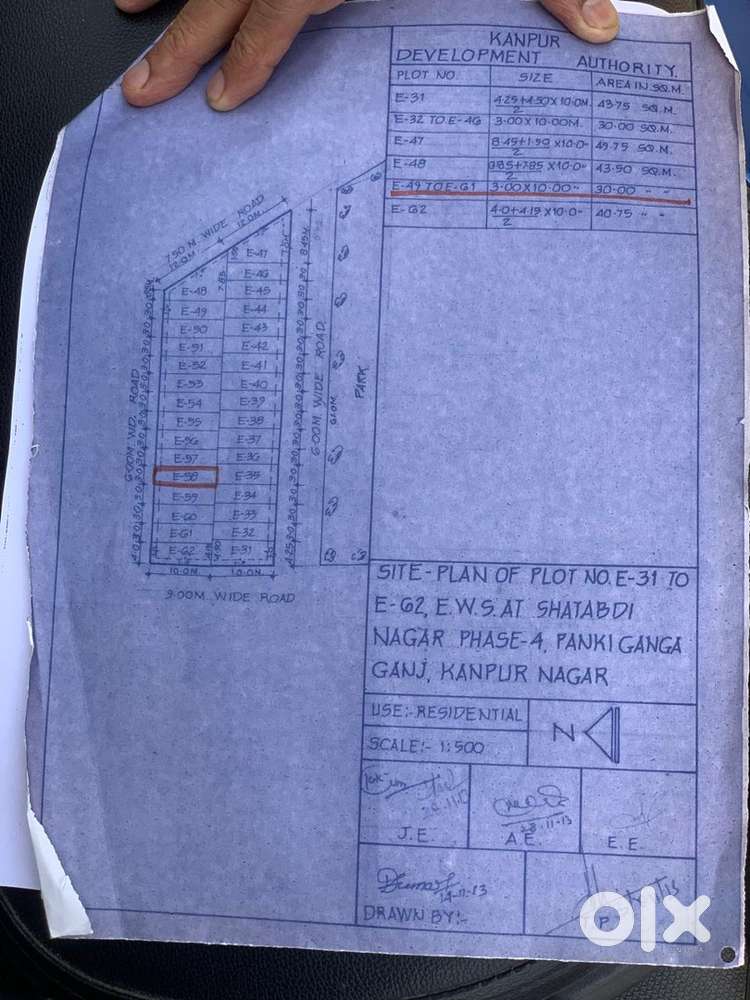 KANPUR
DEVELOPMENT AUTHORITY.
PLOT NO. SIZE AREA IN SQ.M.
E-31 4.25+4.50 X 10.0M 43.75 SQ.M.
2
E-32 TO E-46 3.00X10.00M. 30.00 SQ.M.
E-47 8.45+1.50 X10.0 49.75 SQ.M.
2
E-48 X10.0 43.50 SQ.M.
2
E-49 TO E-61 3.00X10.00 " 30.00 " "
E-62 4.0+4.15 X10.0 40.75 " "
2
7.50 M WIDE ROAD
12.0M. 12.0M.
E-47
E-46
E-48 E-45
E-49 E-44
E-50 E-43
E-51 E-42
E-52 E-41
E-53 E-40
E-54 E-39
E-55 E-38
E-56 E-37
E-57 E-36
E-58 E-35
E-59 E-34
E-60 E-33
E-61 E-32
E-62 E-31
10.0M. 10.0M.
6.00M WD. ROAD
6.00M WIDE ROAD
PARK
9.00M WIDE ROAD
SITE-PLAN OF PLOT NO. E-31 TO
E-62, E.W.S. AT SHATABDI
NAGAR PHASE-4, PANKI GANGA
GANJ, KANPUR NAGAR
USE:- RESIDENTIAL
N
SCALE:- 1:500
J.E. A.E. E.E.
DRAWN BY:-
olx